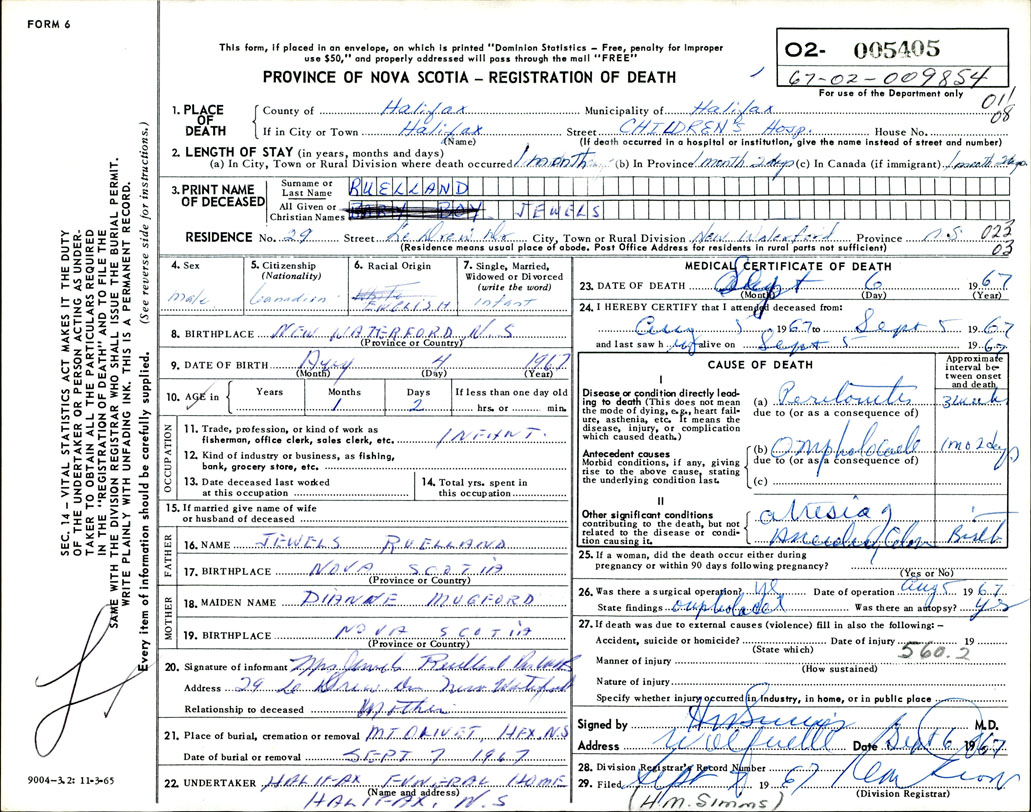 FORM 6
This form, if placed in an envelope, on which is printed "Dominion Statistics – Free, penalty for improper
use $50," and properly addressed will pass through the mail "FREE"
PROVINCE OF NOVA SCOTIA – REGISTRATION OF DEATH
02- 005405
67-02-009854
For use of the Department only
011
08
1. PLACE OF DEATH
County of Halifax Municipality of Halifax
If in City or Town Halifax Street CHILDREN'S Hosp. House No.
(Name) (If death occurred in a hospital or institution, give the name instead of street and number)
2. LENGTH OF STAY (in years, months and days)
(a) In City, Town or Rural Division where death occurred 1 month (b) In Province 1 month 2 days (c) In Canada (if immigrant) 1 month 2 days
3. PRINT NAME OF DECEASED
Surname or Last Name RUELLAND
All Given or Christian Names BABY BOY JEWELS
RESIDENCE No. 29 Street City, Town or Rural Division New Waterford Province N.S. 023
03
(Residence means usual place of abode. Post Office Address for residents in rural parts not sufficient)
4. Sex
male
5. Citizenship
(Nationality)
Canadian
6. Racial Origin
White
ENGLISH
7. Single, Married,
Widowed or Divorced
(write the word)
infant
8. BIRTHPLACE NEW WATERFORD, N.S
(Province or Country)
9. DATE OF BIRTH 4 1967
(Month) (Day) (Year)
10. AGE in
Years Months Days If less than one day old
1 2 hrs. or min.
OCCUPATION
11. Trade, profession, or kind of work as
fisherman, office clerk, sales clerk, etc. INFANT.
12. Kind of industry or business, as fishing,
bank, grocery store, etc.
13. Date deceased last worked
at this occupation
14. Total yrs. spent in
this occupation
15. If married give name of wife
or husband of deceased
FATHER
16. NAME JEWELS RUELLAND
17. BIRTHPLACE NOVA SCOTIA
(Province or Country)
MOTHER
18. MAIDEN NAME DIANNE MUGFORD
19. BIRTHPLACE NOVA SCOTIA
(Province or Country)
20. Signature of informant Mrs Jewels Ruelland
Address 29 New Waterford
Relationship to deceased Mother
21. Place of burial, cremation or removal MT. OLIVET, HFX. N.S
Date of burial or removal SEPT 7 1967
22. UNDERTAKER HALIFAX FUNERAL HOME
(Name and address)
HALIFAX, N.S
MEDICAL CERTIFICATE OF DEATH
23. DATE OF DEATH Sept 6 1967
(Month) (Day) (Year)
24. I HEREBY CERTIFY that I attended deceased from:
Aug 5 1967 to Sept 5 1967
and last saw h im alive on Sept 5 1967
CAUSE OF DEATH
Approximate
interval be-
tween onset
and death
I
Disease or condition directly lead-
ing to death (This does not mean
the mode of dying, e.g., heart fail-
ure, asthenia, etc. It means the
disease, injury, or complication
which caused death.)
(a) Peritonitis 3 week
due to (or as a consequence of)
Antecedent causes
Morbid conditions, if any, giving
rise to the above cause, stating
the underlying condition last.
(b) Omphalocele 1 mo 2 days
due to (or as a consequence of)
(c)
II
Other significant conditions
contributing to the death, but not
related to the disease or condi-
tion causing it.
atresia of
Ascending Colon Birth
25. If a woman, did the death occur either during
pregnancy or within 90 days following pregnancy?
(Yes or No)
26. Was there a surgical operation? yes Date of operation Aug 5 1967
State findings Was there an autopsy? yes
27. If death was due to external causes (violence) fill in also the following: –
Accident, suicide or homicide? Date of injury 19
(State which)
560.2
Manner of injury
(How sustained)
Nature of injury
Specify whether injury occurred in industry, in home, or in public place
Signed by M.D.
Address Date Sept 6 1967
28. Division Registrar's Record Number
29. Filed Sept 1967
(Division Registrar)
(H.M. Simms)
SEC. 14 – VITAL STATISTICS ACT MAKES IT THE DUTY
OF THE UNDERTAKER OR PERSON ACTING AS UNDER-
TAKER TO OBTAIN ALL THE PARTICULARS REQUIRED
IN THE "REGISTRATION OF DEATH" AND TO FILE THE
SAME WITH THE DIVISION REGISTRAR WHO SHALL ISSUE THE BURIAL PERMIT.
WRITE PLAINLY WITH UNFADING INK. THIS IS A PERMANENT RECORD.
Every item of information should be carefully supplied. (See reverse side for instructions.)
9004-3.2: 11-3-65